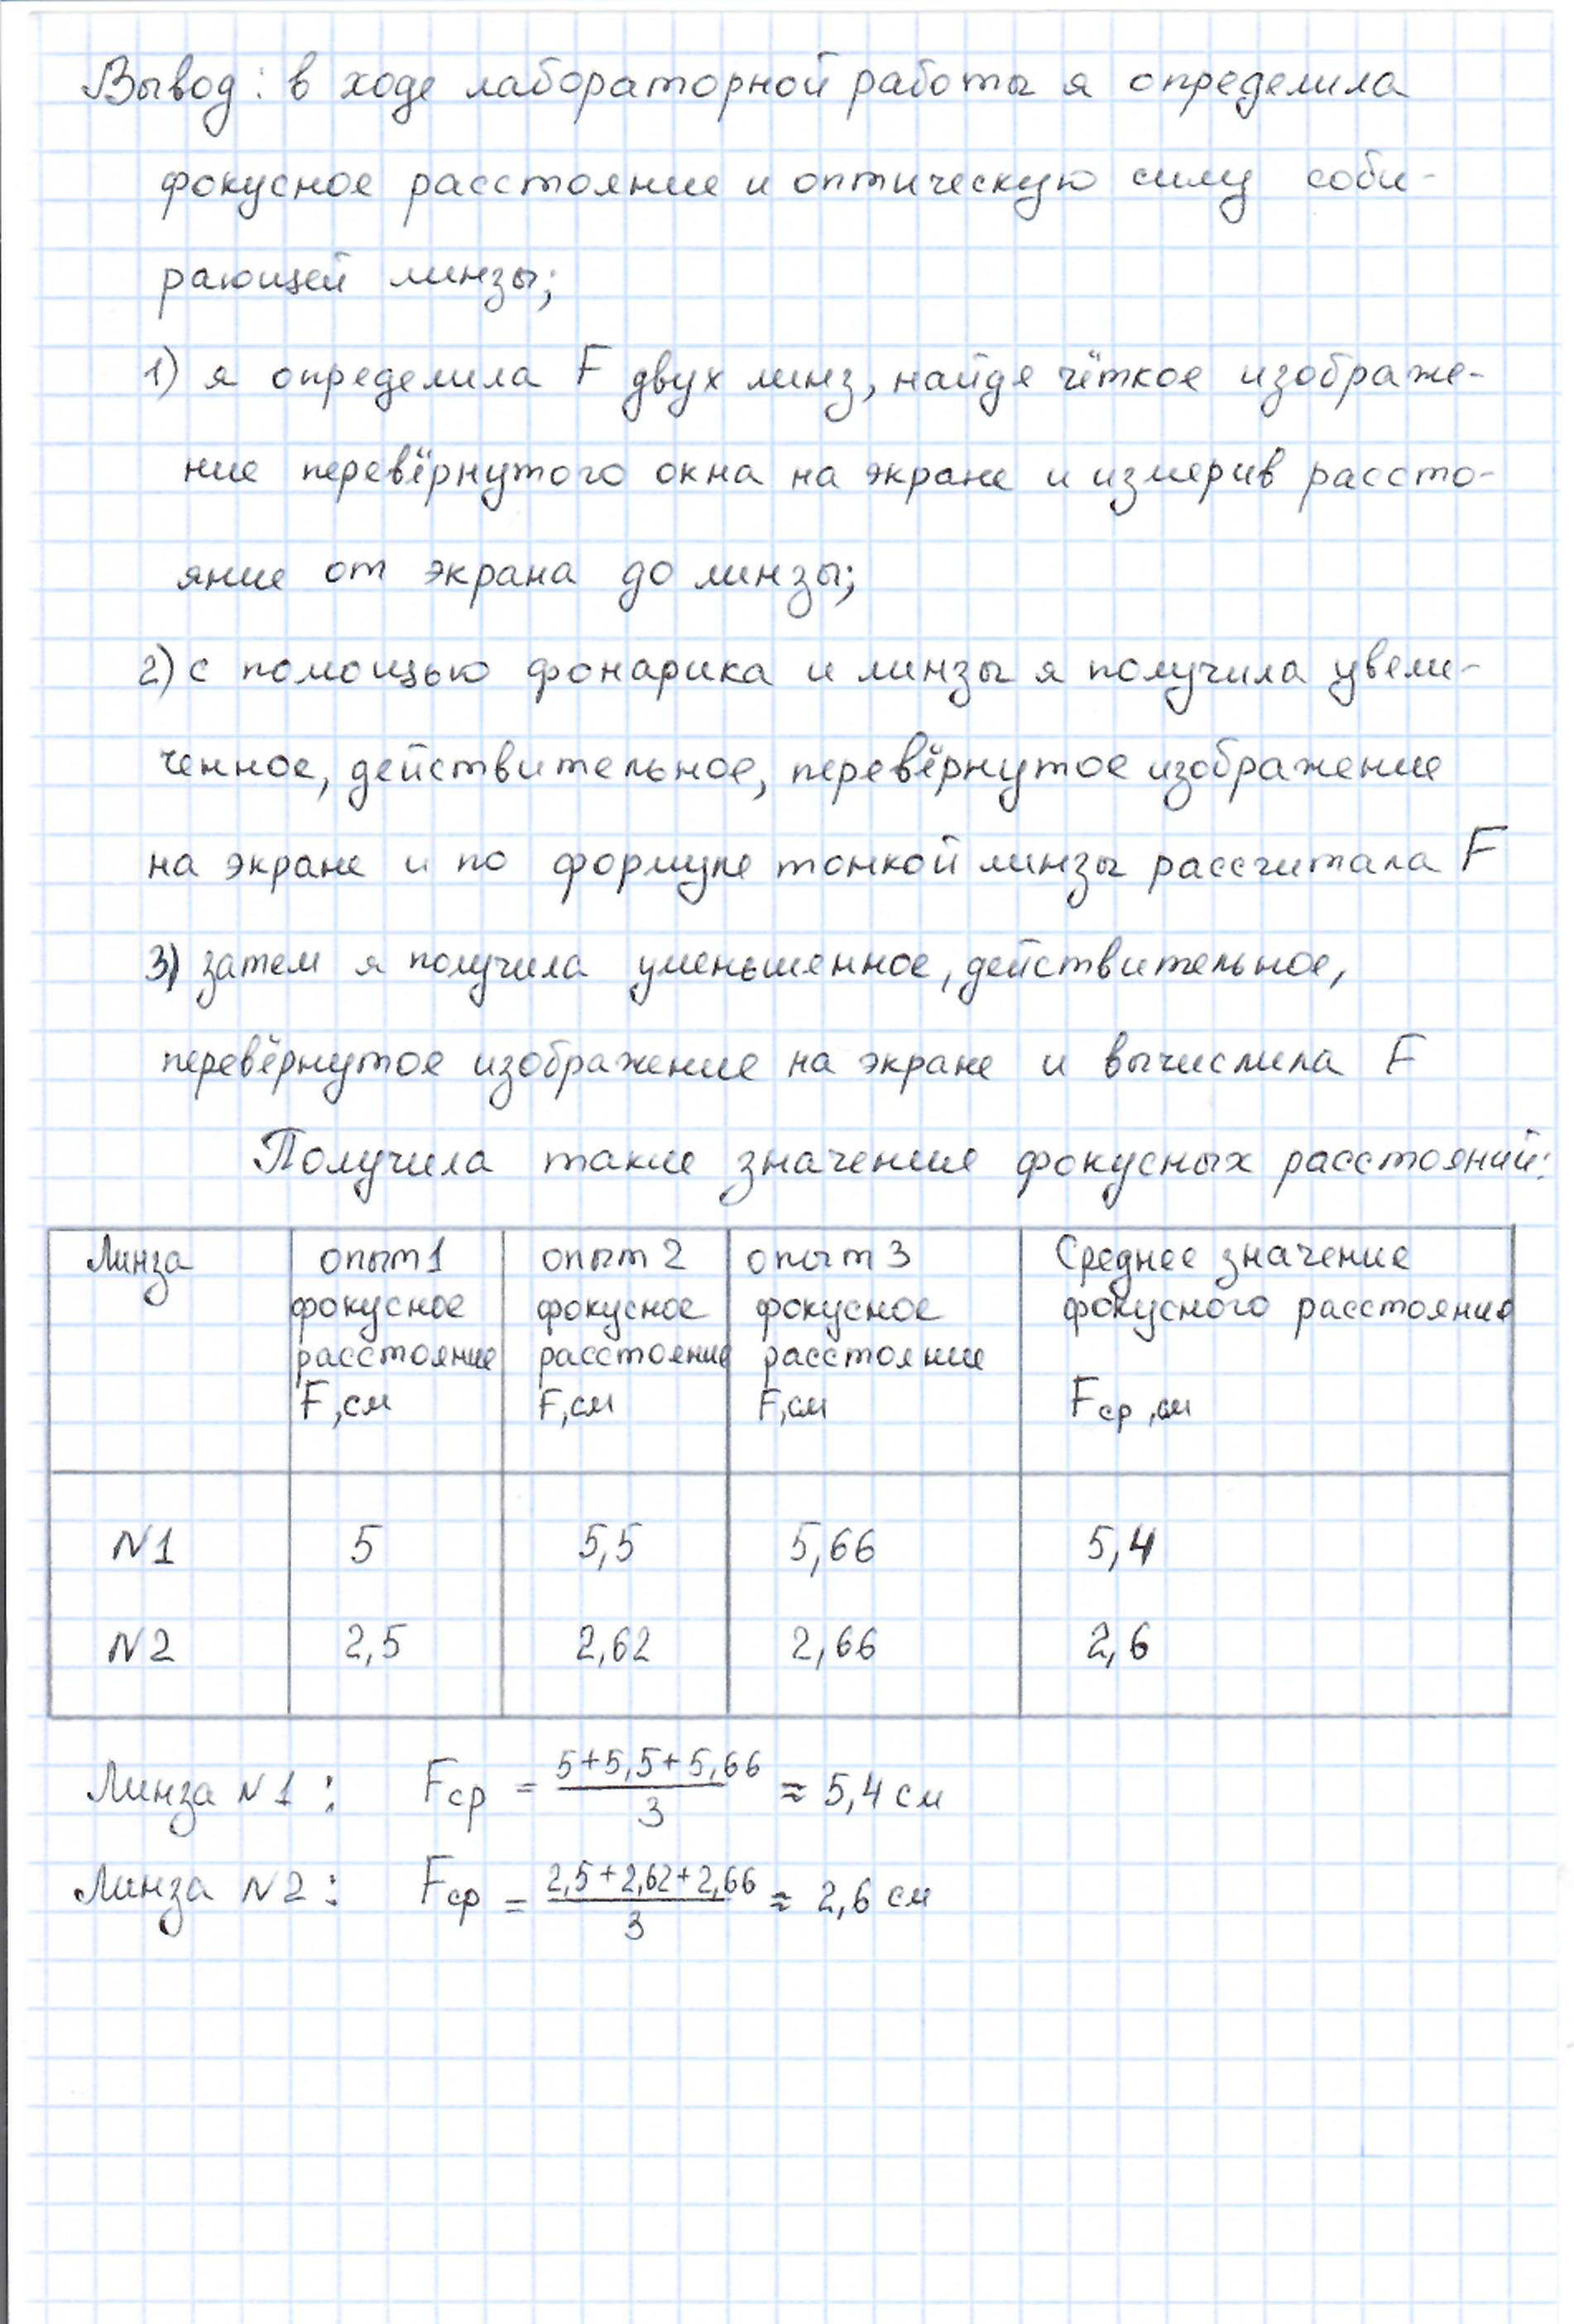 Вывод: в ходе лабораторной работы я определила
фокусное расстояние и оптическую силу соби-
рающей линзы;
1) я определила F двух линз, найдя чёткое изображе-
ние перевёрнутого окна на экране и измерив рассто-
яние от экрана до линзы;
2) с помощью фонарика и линзы я получила увели-
ченное, действительное, перевёрнутое изображение
на экране и по формуле тонкой линзы рассчитала F
3) затем я получила уменьшенное, действительное,
перевёрнутое изображение на экране и вычислила F
Получила такие значения фокусных расстояний:
Линза опыт 1 опыт 2 опыт 3 Среднее значение
фокусное фокусное фокусное фокусного расстояния
расстояние расстояние расстояние
F, см F, см F, см Fср, см
N1 5 5,5 5,66 5,4
N2 2,5 2,62 2,66 2,6
Линза N1: Fср = 5+5,5+5,66 / 3 ≈ 5,4 см
Линза N2: Fср = 2,5+2,62+2,66 / 3 ≈ 2,6 см